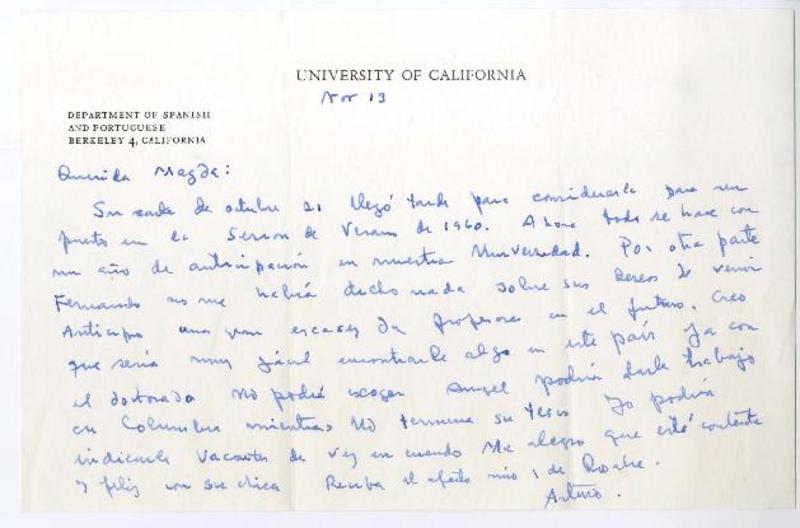 UNIVERSITY OF CALIFORNIA
Nov 13
DEPARTMENT OF SPANISH
AND PORTUGUESE
BERKELEY 4, CALIFORNIA
Querida Magda:
Su carta de octubre 21 llegó tarde para considerarla para un
puesto en la Sesion de Verano de 1960. Ahora todo se hace con
un año de anticipación en nuestra Universidad. Por otra parte
Fernando no me había dicho nada sobre sus deseos de venir
Anticipo una gran escasez de profesores en el futuro. Creo
que sería muy fácil encontrarle algo en este país ya con
el doctorado No podrá escoger Angel podría darle trabajo
en Columbia mientras no termina su tesis Yo podría
indicarle vacantes de vez en cuando Me alegro que esté contenta
y feliz con su chica Reciba el afecto mío y de
Arturo.